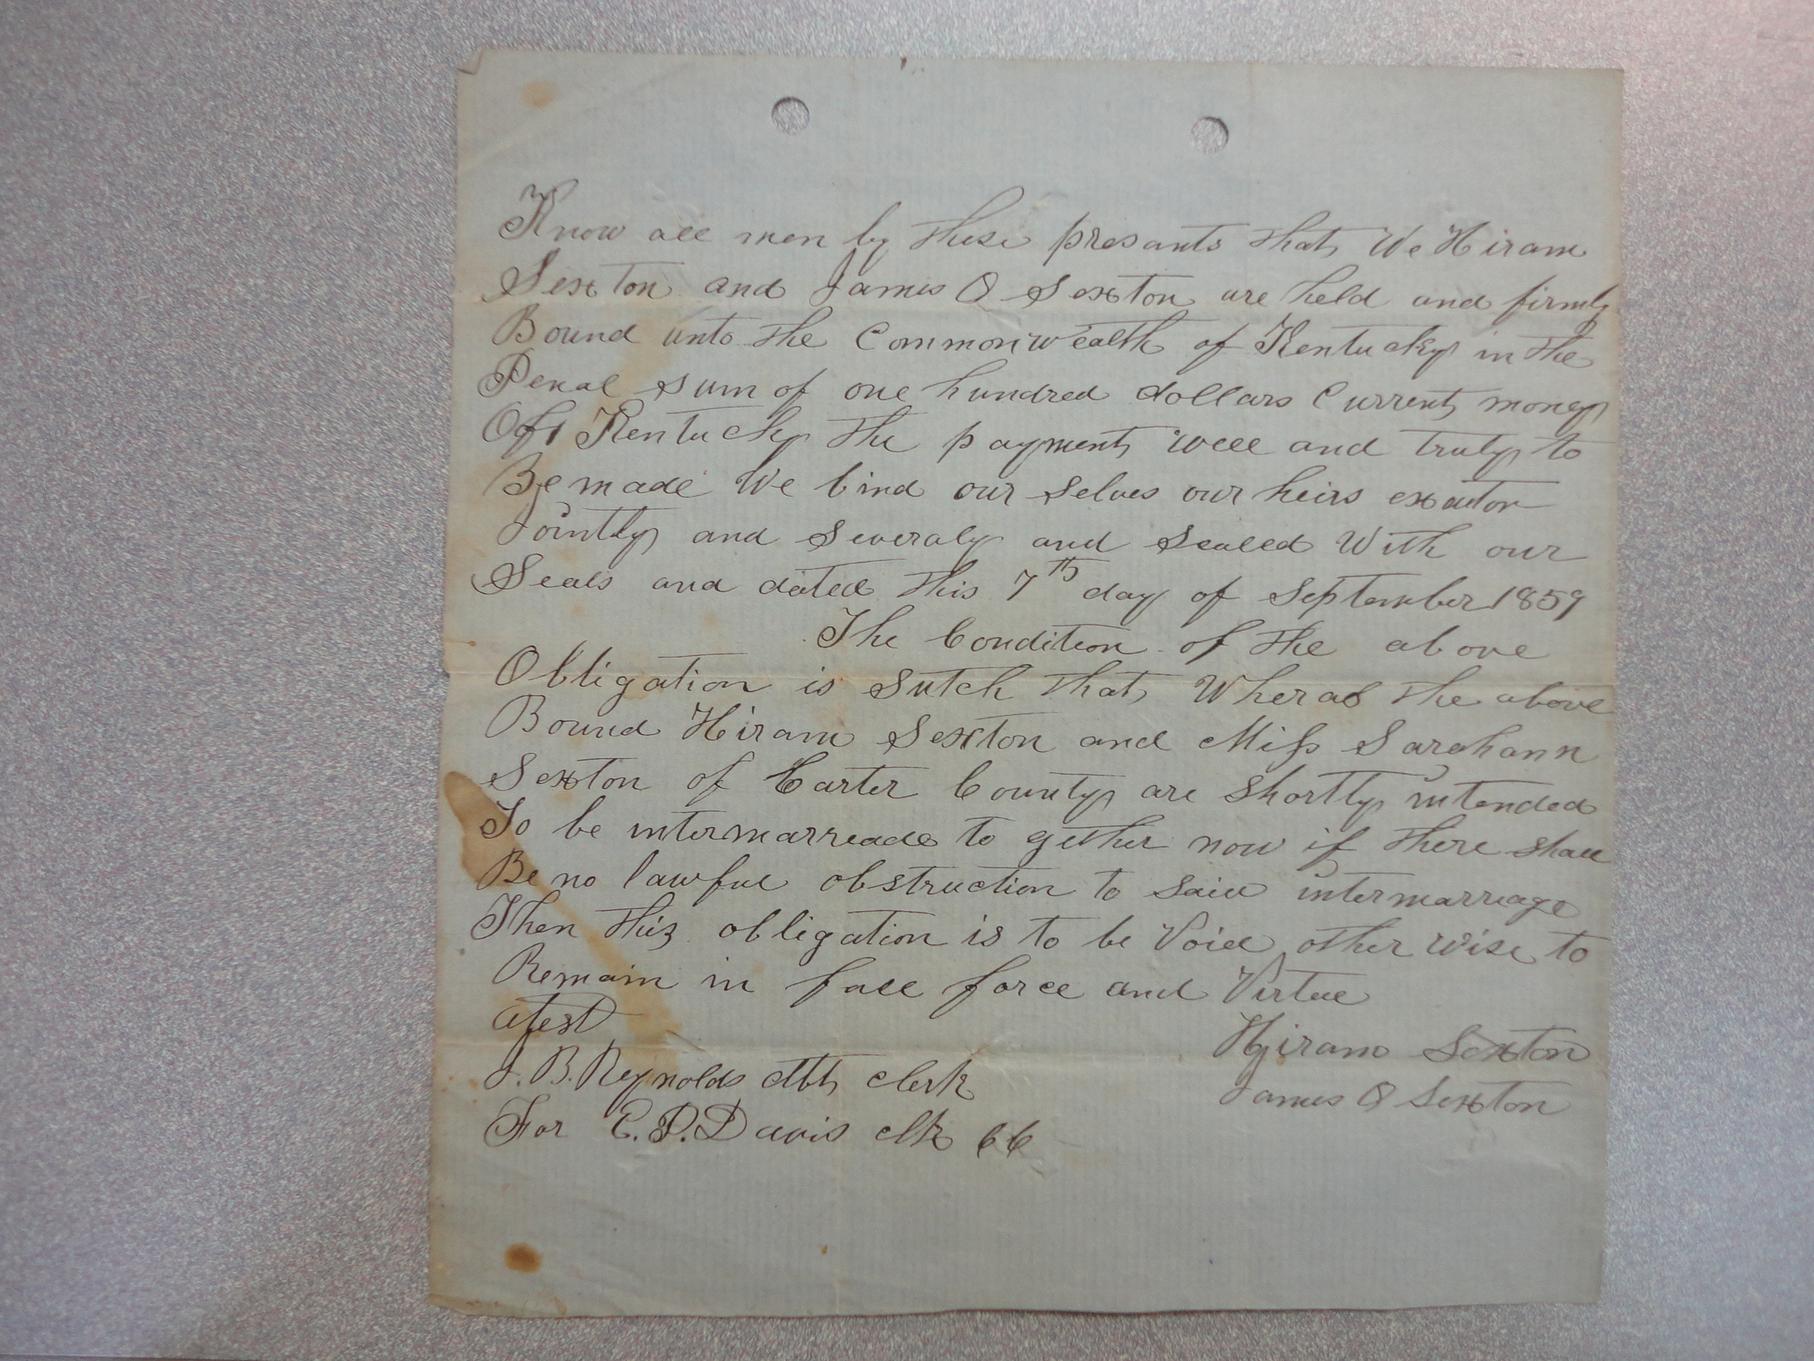 Know all men by these presants that We Hiram
Sexton and James O Sexton are held and firmly
Bound unto the CommonWealth of Kentucky in the
Penal sum of one hundred dollars Current money
Of Kentucky the payment well and truly to
Be made We bind our selves our heirs exeutor
Jointly and Severaly and Sealed With our
Seals and dated this 7th day of September 1859
The Condition of the above
Obligation is Sutch that Wheras the above
Bound Hiram Sexton and Miss Sarahann
Sexton of Carter County are Shortly intended
To be intermarreade to gether now if there shall
Be no lawful obstruction to Said intermarriage
Then this obligation is to be Void other Wise to
Remain in full force and Virtue
atest
J. B. Reynolds dpt clerk
For C. P. Davis clk CC
Hiram Sexton
James O Sexton